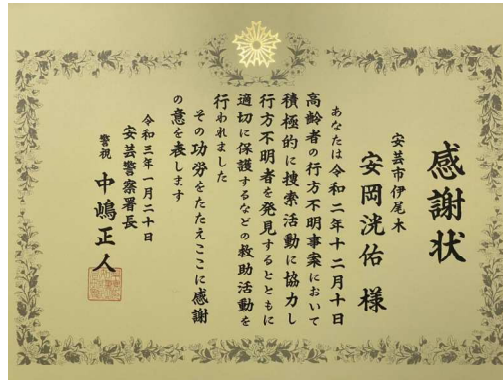 感謝状
安芸市伊尾木
安岡洸佑 様
あなたは令和二年十二月十日
高齢者の行方不明事案において
積極的に捜索活動に協力し
行方不明者を発見するとともに
適切に保護するなどの救助活動を
行われました
その功労をたたえここに感謝
の意を表します
令和三年一月二十日
安芸警察署長
警視 中嶋正人